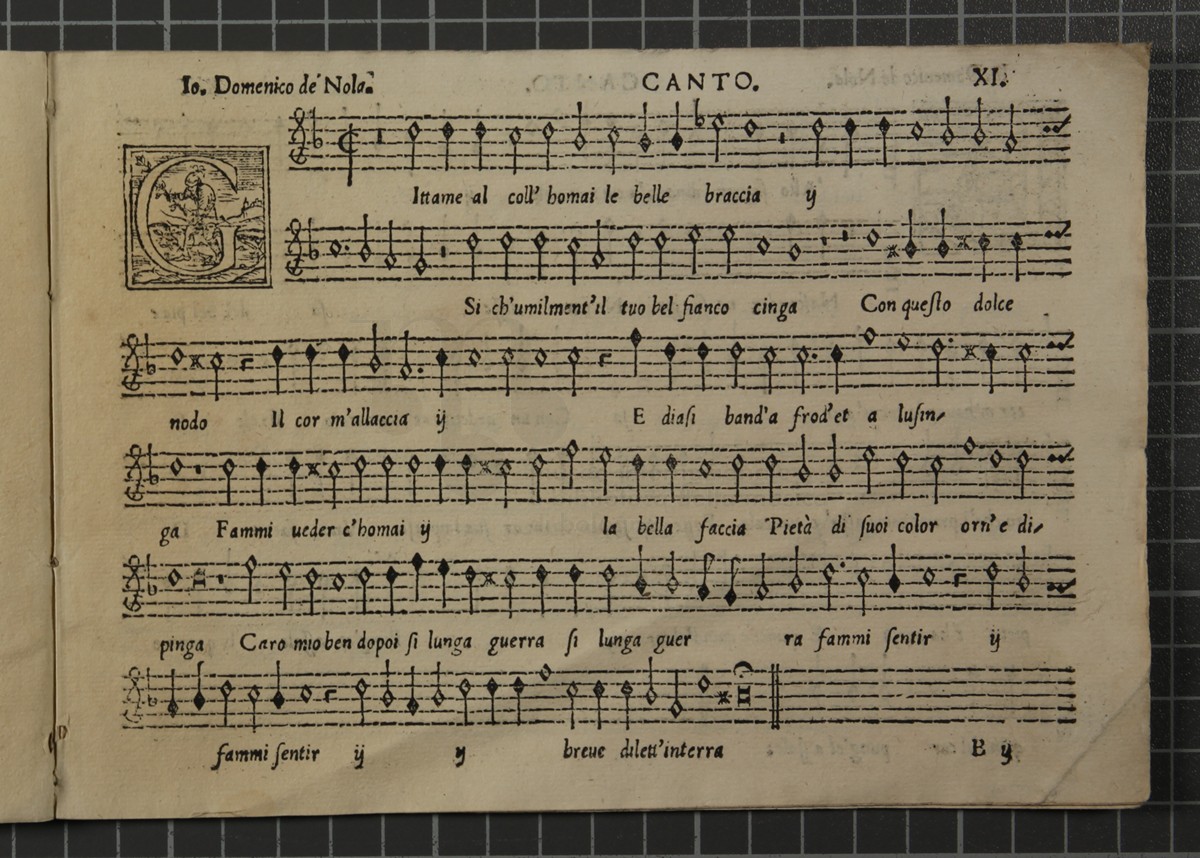 Io. Domenico de' Nola. CANTO. XI.
G Ittame al coll' homai le belle braccia ij
Si ch'umilment'il tuo bel fianco cinga Con questo dolce
nodo Il cor m'allaccia ij E diasi band'a frod'et a lusin-
ga Fammi ueder c'homai ij la bella faccia Pietà di suoi color orn' e di-
pinga Caro mio ben dopoi si lunga guerra si lunga guer ra fammi sentir ij
fammi sentir ij ij breue dilett'interra
B ij